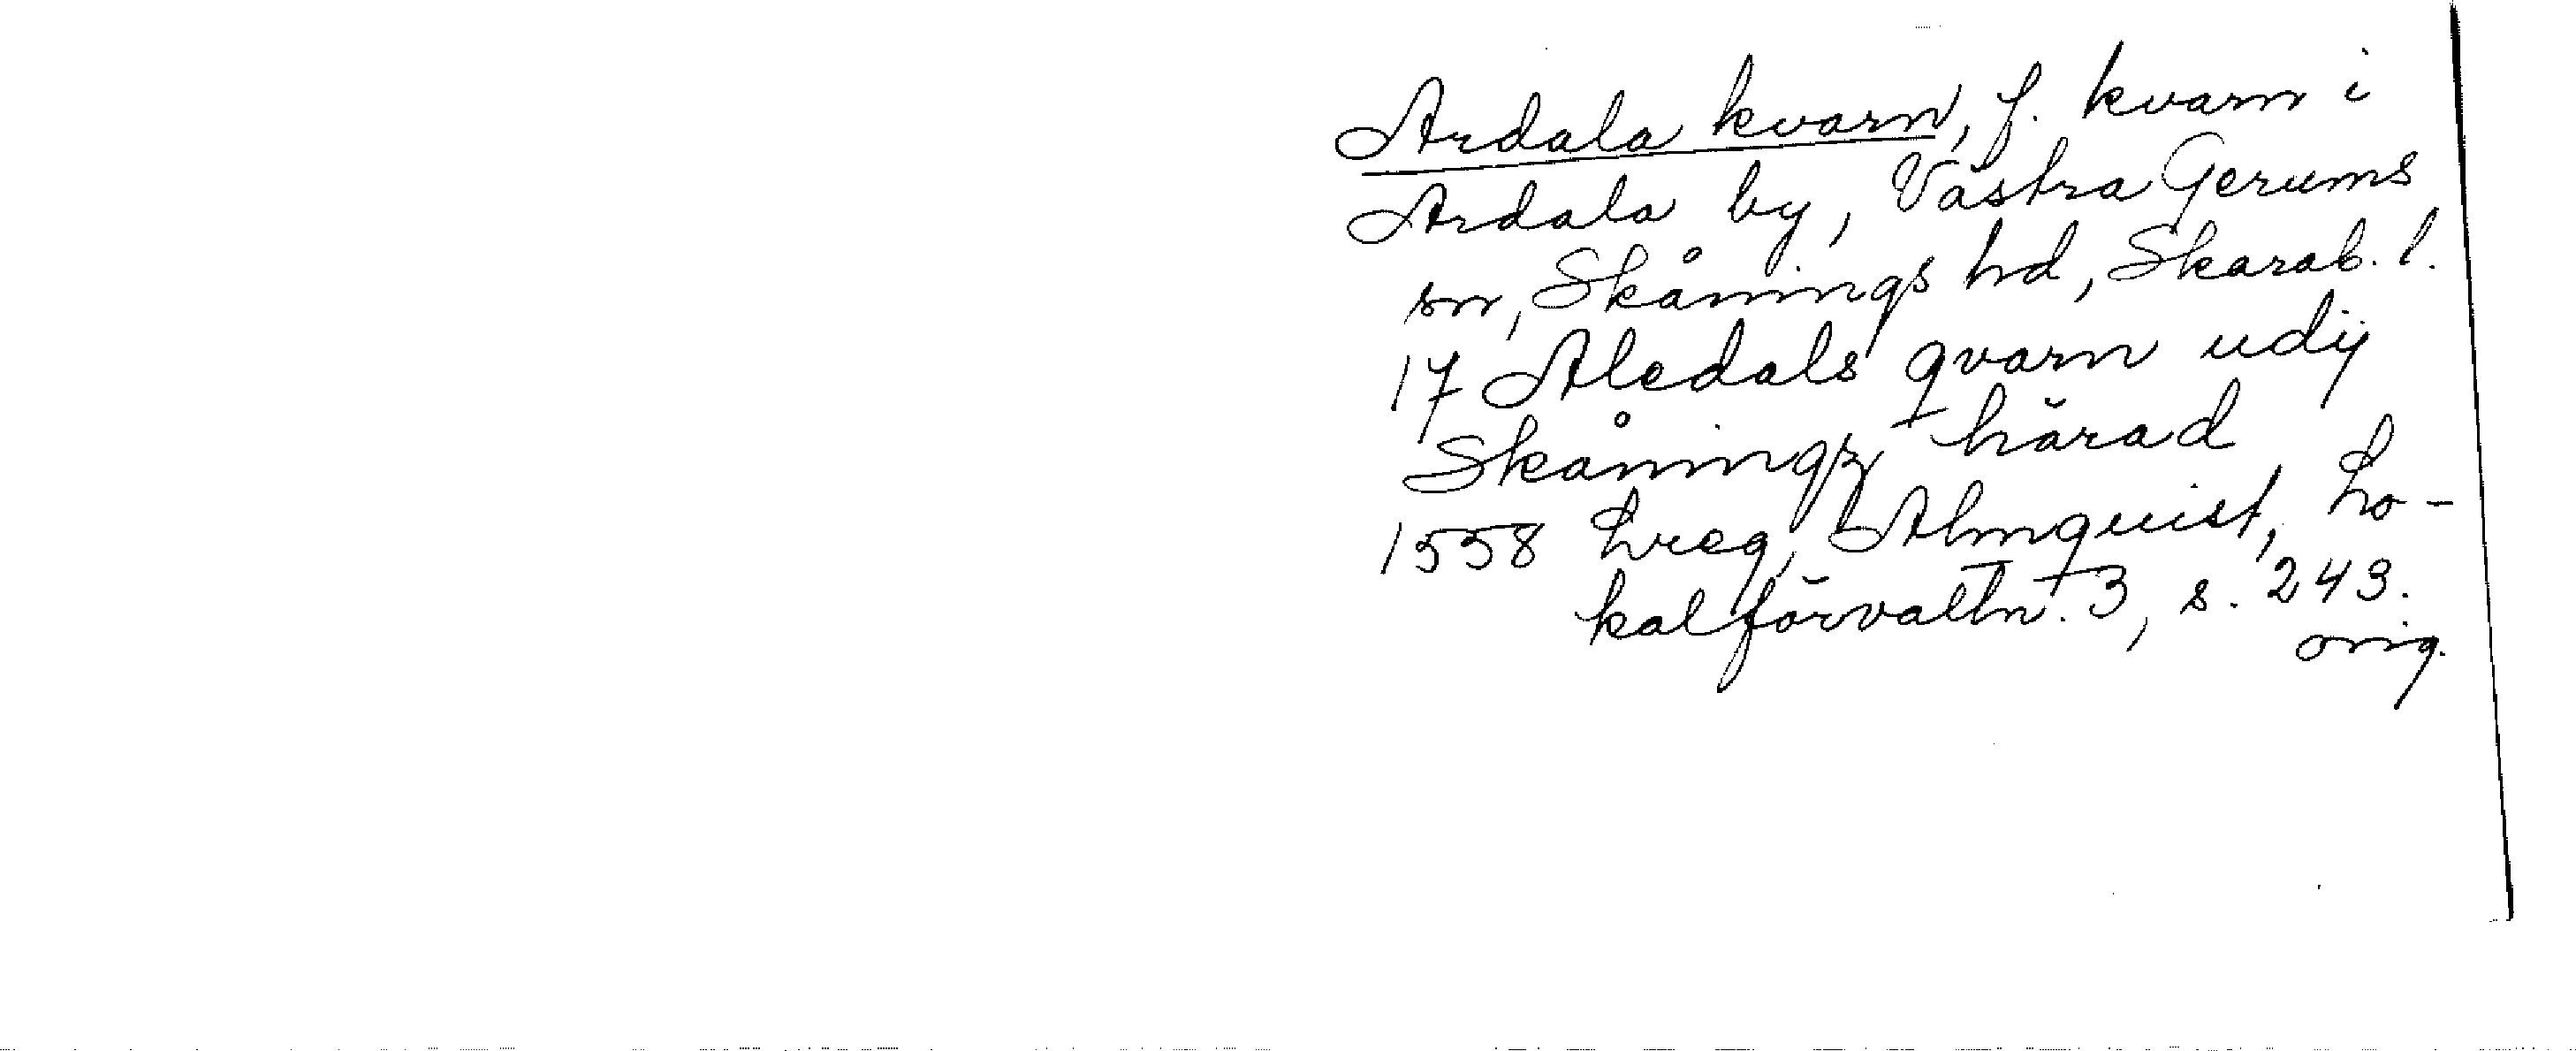 Ardala kvarn, f. kvarn i
Ardala by, Västra Gerums
sn, Skånings hd, Skarab. l.
17 Aledals qvarn udij
Skåningz härad
1558 Lreg, Almquist, Lo-
kalförvaltn. 3, s. 243.
orig.